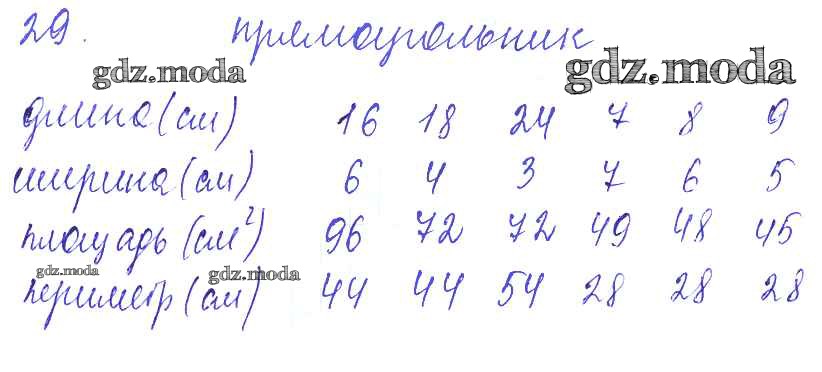 29. прямоугольник
gdz.moda gdz.moda
длина (см) 16 18 24 7 8 9
ширина (см) 6 4 3 7 6 5
площадь (см²) 96 72 72 49 48 45
gdz.moda gdz.moda
периметр (см) 44 44 54 28 28 28